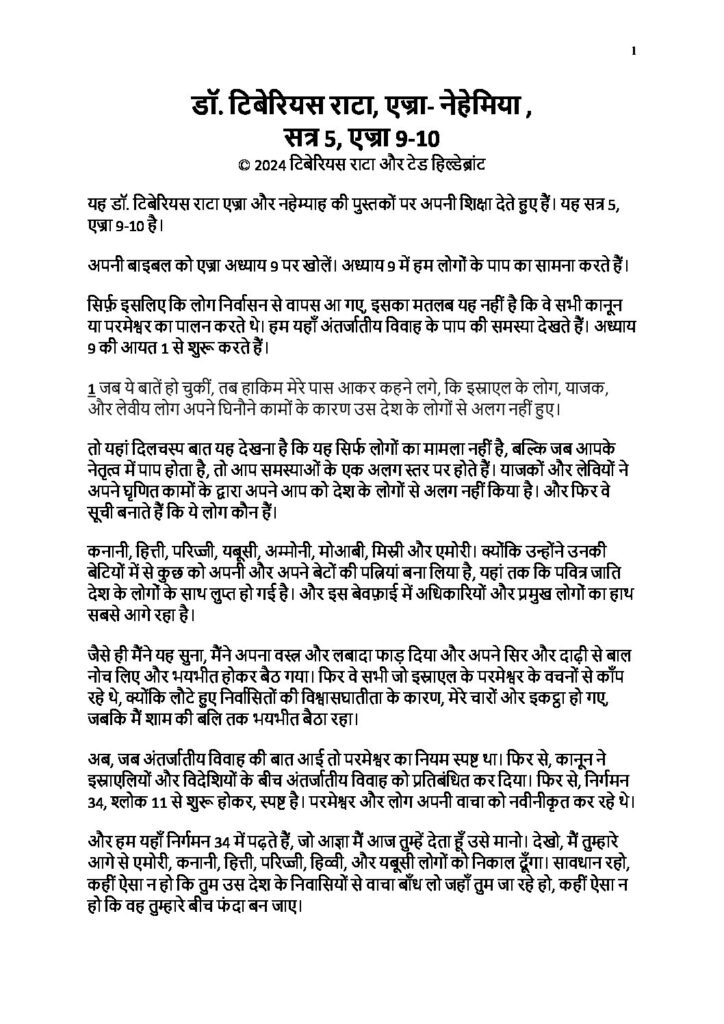 1
डॉ. टिबेरियस राटा, एज्रा- नेहेमिया ,
सत्र 5, एज्रा 9-10
© 2024 टिबेरियस राटा और टेड हिल्डेब्रांट
यह डॉ. टिबेरियस राटा एज्रा और नहेम्याह की पुस्तकों पर अपनी शिक्षा देते हुए हैं। यह सत्र 5,
एज्रा 9-10 है।
अपनी बाइबल को एज्रा अध्याय 9 पर खोलें। अध्याय 9 में हम लोगों के पाप का सामना करते हैं।
सिर्फ़ इसलिए कि लोग निर्वासन से वापस आ गए, इसका मतलब यह नहीं है कि वे सभी कानून
या परमेश्वर का पालन करते थे। हम यहाँ अंतर्जातीय विवाह के पाप की समस्या देखते हैं। अध्याय
9 की आयत 1 से शुरू करते हैं।
1 जब ये बातें हो चुकीं, तब हाकिम मेरे पास आकर कहने लगे, कि इस्राएल के लोग, याजक,
और लेवीय लोग अपने घिनौने कामों के कारण उस देश के लोगों से अलग नहीं हुए।
तो यहां दिलचस्प बात यह देखना है कि यह सिर्फ लोगों का मामला नहीं है, बल्कि जब आपके
नेतृत्व में पाप होता है, तो आप समस्याओं के एक अलग स्तर पर होते हैं। याजकों और लेवियों ने
अपने घृणित कामों के द्वारा अपने आप को देश के लोगों से अलग नहीं किया है। और फिर वे
सूची बनाते हैं कि ये लोग कौन हैं।
कनानी, हित्ती, परिज्जी, यबूसी, अम्मोनी, मोआबी, मिस्री और एमोरी। क्योंकि उन्होंने उनकी
बेटियों में से कुछ को अपनी और अपने बेटों की पत्नियां बना लिया है, यहां तक कि पवित्र जाति
देश के लोगों के साथ लुप्त हो गई है। और इस बेवफ़ाई में अधिकारियों और प्रमुख लोगों का हाथ
सबसे आगे रहा है।
जैसे ही मैंने यह सुना, मैंने अपना वस्त्र और लबादा फाड़ दिया और अपने सिर और दाढ़ी से बाल
नोच लिए और भयभीत होकर बैठ गया। फिर वे सभी जो इस्राएल के परमेश्वर के वचनों से काँप
रहे थे, क्योंकि लौटे हुए निर्वासितों की विश्वासघातीता के कारण, मेरे चारों ओर इकट्ठा हो गए,
जबकि मैं शाम की बलि तक भयभीत बैठा रहा।
अब, जब अंतर्जातीय विवाह की बात आई तो परमेश्वर का नियम स्पष्ट था। फिर से, कानून ने
इस्राएलियों और विदेशियों के बीच अंतर्जातीय विवाह को प्रतिबंधित कर दिया। फिर से, निर्गमन
34, श्लोक 11 से शुरू होकर, स्पष्ट है। परमेश्वर और लोग अपनी वाचा को नवीनीकृत कर रहे थे।
और हम यहाँ निर्गमन 34 में पढ़ते हैं, जो आज्ञा मैं आज तुम्हें देता हूँ उसे मानो। देखो, मैं तुम्हारे
आगे से एमोरी, कनानी, हित्ती, परिज्जी, हिव्वी, और यबूसी लोगों को निकाल दूँगा। सावधान रहो,
कहीं ऐसा न हो कि तुम उस देश के निवासियों से वाचा बाँध लो जहाँ तुम जा रहे हो, कहीं ऐसा न
हो कि वह तुम्हारे बीच फंदा बन जाए।